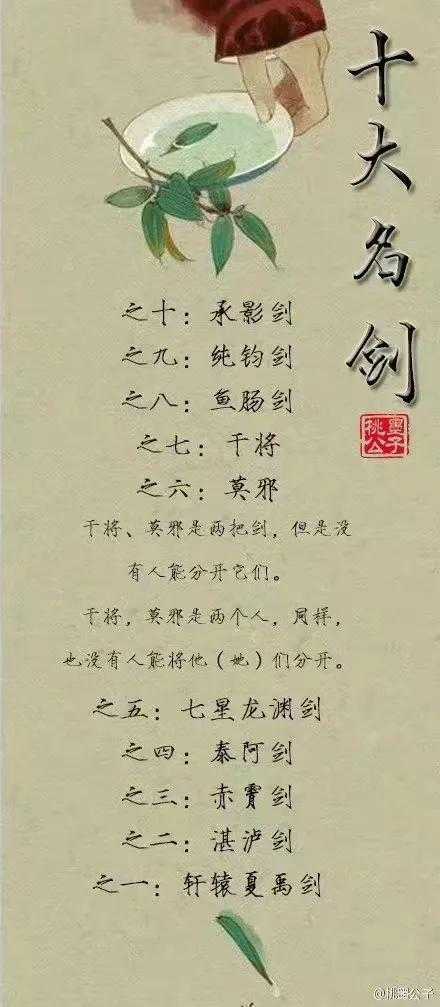 十大名剑
桃墨公子
之十：承影剑
之九：纯钧剑
之八：鱼肠剑
之七：干将
之六：莫邪
干将、莫邪是两把剑，但是没
有人能分开它们。
干将，莫邪是两个人，同样，
也没有人能将他（她）们分开。
之五：七星龙渊剑
之四：泰阿剑
之三：赤霄剑
之二：湛泸剑
之一：轩辕夏禹剑